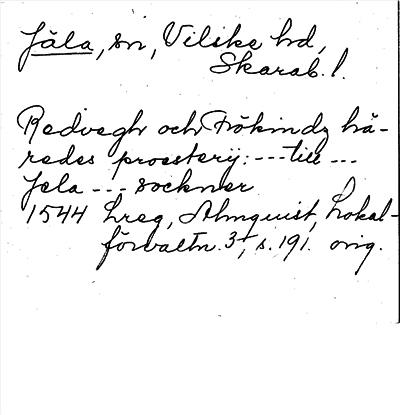 Jäla, sn, Vilske hd,
Skarab. l.
Redvegh och Frökindz hä-
redes proesterij: --- till ---
Jela --- sockner
1544 Lreg, Almquist, Lokal-
förvaltn. 3, s. 191. orig.